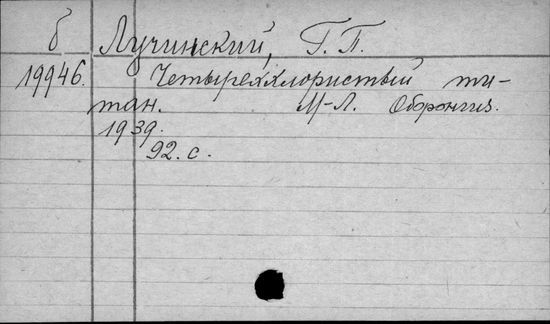 б Лучинский, Г. П.
19946. Четыреххлористый ти-
тан. М-Л. Оборонгиз.
1939.
92. с.